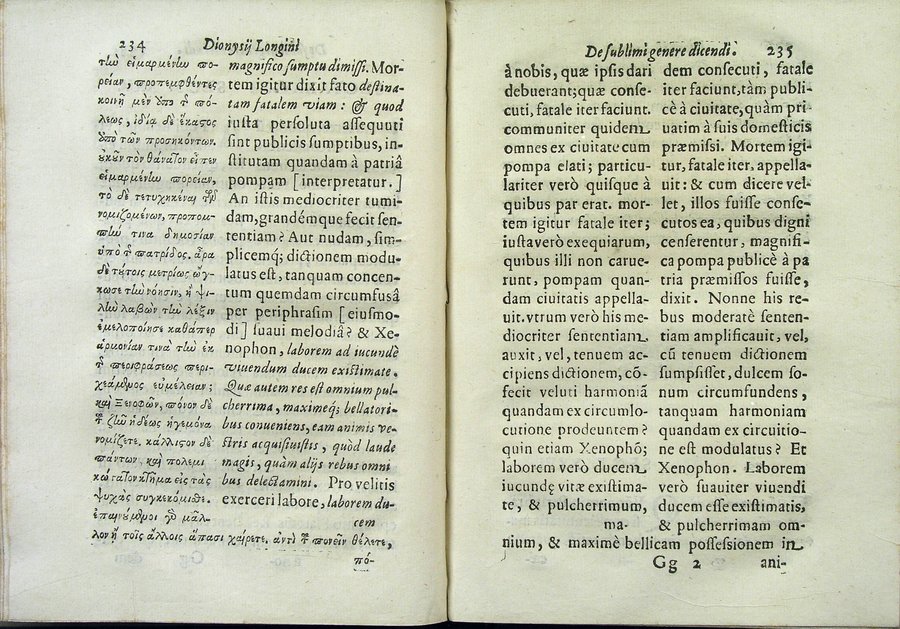 234 Dionysij Longini
τὴν εἱμαρμένην πο-
ρείαν, προπεμφθέντες
κοινῇ μὲν ὑπὸ τ πό-
λεως, ἰδίᾳ δὲ ἕκαστος
ὑπὸ τῶν προσηκόντων.
οὐκοῦν τὸν θάνατον εἶπεν
εἱμαρμένην πορείαν,
τὸ δὲ τετυχηκέναι τῶν
νομιζομένων, προπομ-
πήν τινα δημοσίαν
ὑπὸ τ πατρίδος. ἆρα
δὴ τούτοις μετρίως ὤγ-
κωσε τὴν νόησιν, ἢ ψι-
λὴν λαβὼν τὴν λέξιν
ἐμελοποίησε καθάπερ
ἁρμονίαν τινὰ τὴν ἐκ
τ περιφράσεως περι-
χεάμενος εὐμέλειαν;
καὶ Ξενοφῶν, πόνον δὲ
τ ζῆν ἡδέως ἡγεμόνα
νομίζετε, κάλλιστον δὲ
πάντων, καὶ πολεμι
κώτατον κτῆμα εἰς τὰς
ψυχὰς συγκεκόμισθε.
ἐπαινούμενοι γὰρ μᾶλ-
λον ἢ τοῖς ἄλλοις ἅπασι χαίρετε, ἀντὶ τ πονεῖν θέλετε,
πό-
magnifico sumptu dimissi. Mor-
tem igitur dixit fato destina-
tam fatalem viam: & quod
iusta persoluta assequuti
sint publicis sumptibus, in-
stitutam quandam à patriâ
pompam [interpretatur.]
An istis mediocriter tumi-
dam, grandémque fecit sen-
tentiam? Aut nudam, sim-
plicemq; dictionem modu-
latus est, tanquam concen-
tum quemdam circumfusâ
per periphrasim [eiusmo-
di] suaui melodiâ? & Xe-
nophon, laborem ad iucundè
viuendum ducem existimate.
Quæ autem res est omnium pul-
cherrima, maximeq; bellatori-
bus conueniens, eam animis ve-
stris acquisiuistis, quòd laude
magis, quàm alijs rebus omni
bus delectamini. Pro velitis
exerceri labore, laborem du-
cem
De sublimi genere dicendi. 235
à nobis, quæ ipsis dari
debuerant; quæ conse-
cuti, fatale iter faciunt.
communiter quidem
omnes ex ciuitate cum
pompa elati; particu-
lariter verò quisque à
quibus par erat. mor-
tem igitur fatale iter;
iusta verò exequiarum,
quibus illi non carue-
runt, pompam quan-
dam ciuitatis appella-
uit. vtrum verò his me-
diocriter sententiam
auxit, vel, tenuem ac-
cipiens dictionem, cō-
fecit veluti harmoniā
quandam ex circumlo-
cutione prodeuntem?
quin etiam Xenophō;
laborem verò ducem
iucundę vitæ existima-
te, & pulcherrimum,
ma-
nium, & maximè bellicam possessionem in
Gg 2 ani-
dem consecuti, fatale
iter faciunt, tàm publi-
cè à ciuitate, quàm pri-
uatim à suis domesticis
præmissi. Mortem igi-
tur, fatale iter, appella-
uit: & cum dicere vel-
let, illos fuisse conse-
cutos ea, quibus digni
censerentur, magnifi-
ca pompa publicè à pa
tria præmissos fuisse,
dixit. Nonne his re-
bus moderatè senten-
tiam amplificauit, vel,
cū tenuem dictionem
sumpsisset, dulcem so-
num circumfundens,
tanquam harmoniam
quandam ex circuitio-
ne est modulatus? Et
Xenophon. Laborem
verò suauiter viuendi
ducem esse existimatis,
& pulcherrimam om-